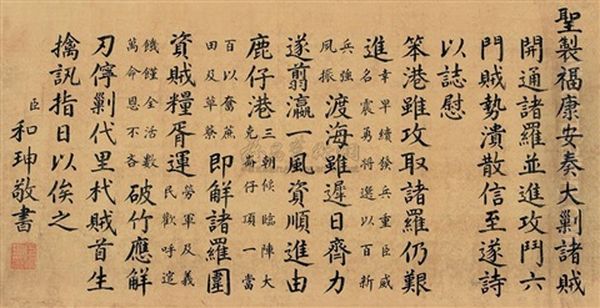 聖製福康安奏大剿諸賊
開通諸羅並進攻鬥六
門賊勢潰散信至遂詩
以誌慰
笨港雖攻取諸羅仍艱
進幸早續發兵重臣威
名震將選以百新
兵強
夙振
渡海雖遲日齊力
遂翦瀛一風資順進由
鹿仔港三朝候臨陣大
克崙仔頂一當
百以奮蔗
田及草寮
即解諸羅圍
資賊糧胥運勞軍及義
民歡呼迓
饑饉全活數
萬命恩不吝
破竹應解
刃儜剿代里杙賊首生
擒訊指日以俟之
臣和珅敬書